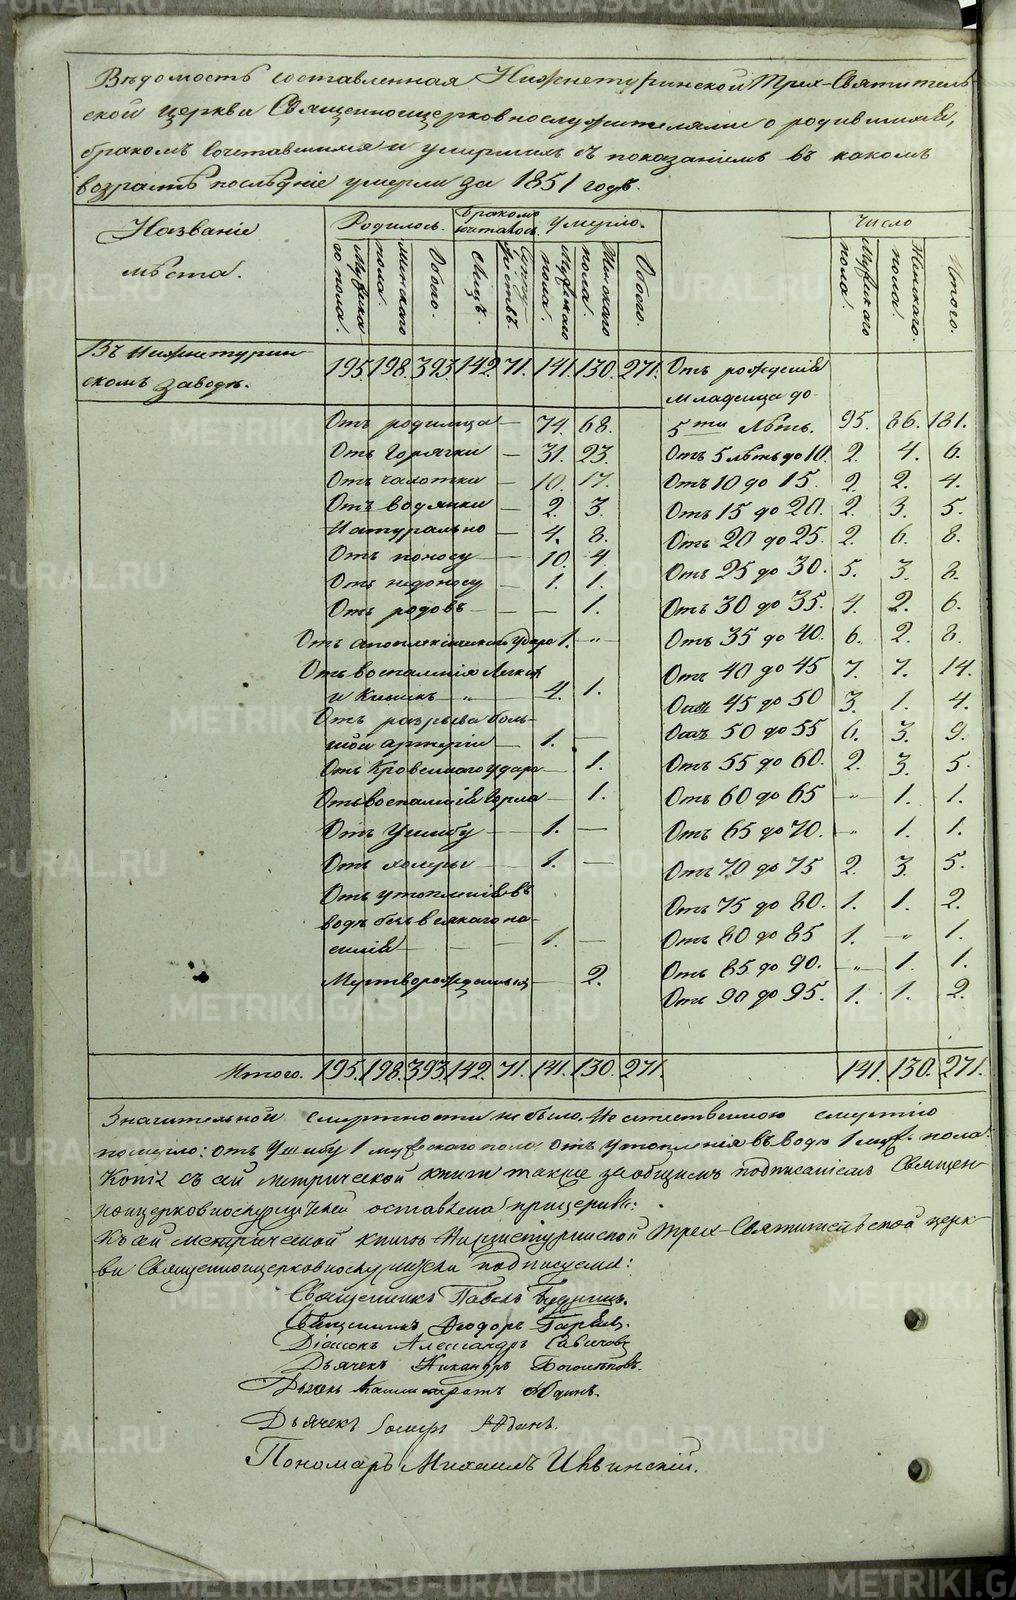 Вѣдомость составленная Нижнетуринской Трех-Святитель
ской церкви Священноцерковнослужителями о родившихся,
бракомъ сочетавшихся и умершихъ съ показаніемъ въ какомъ
возрастѣ послѣдніе умерли за 1851 годъ.
Названіе мѣста. Родилось. Бракомъ сочеталось. Умерло. Число
Мужска го пола. Женскаго пола. Обоего. Лицъ. Супружествъ. Мужскаго пола. Женскаго пола. Обоего. Мужскаго пола. Женскаго пола. Итого.
Въ Нижнетурин-
скомъ заводѣ. 195. 198. 393. 142. 71. 141. 130. 271. Отъ рожденія
младенца до
Отъ родимца — 74. 68. 5ти лѣтъ. 95. 86. 181.
Отъ горячки — 31. 23. Отъ 5 лѣтъ до 10. 2. 4. 6.
Отъ чахотки — 10. 17. Отъ 10 до 15. 2. 2. 4.
Отъ водянки — 2. 3. Отъ 15 до 20. 2. 3. 5.
Натурально — 4. 8. Отъ 20 до 25. 2. 6. 8.
Отъ поносу — 10. 4. Отъ 25 до 30. 5. 3. 8.
Отъ недоносу — 1. 1.
Отъ родовъ — — — 1. Отъ 30 до 35. 4. 2. 6.
Отъ апоплексическаго удара 1. „ — Отъ 35 до 40. 6. 2. 8.
Отъ воспаленія легкихъ Отъ 40 до 45 7. 7. 14.
и кишекъ „ 4. 1. Отъ 45 до 50 3. 1. 4.
Отъ разрыва боль-
шой артеріи — 1. — Отъ 50 до 55 6. 3. 9.
Отъ кровеннаго удара — 1. Отъ 55 до 60. 2. 3. 5.
Отъ воспаленія горла — 1. Отъ 60 до 65 „ 1. 1.
Отъ ушибу — 1. — Отъ 65 до 70. „ 1. 1.
Отъ холеры — 1. — Отъ 70 до 75 2. 3. 5.
Отъ утопленія въ
водѣ безъ всякаго на- Отъ 75 до 80. 1. 1. 2.
силія — — — 1. — Отъ 80 до 85 1. „ 1.
Мертворожденныхъ — 2. Отъ 85 до 90. „ 1. 1.
Отъ 90 до 95. 1. 1. 2.
Итого. 195. 198. 393. 142. 71. 141. 130. 271. 141. 130. 271.
Значительной смертности не было. Не естественною смертію
померло: отъ ушибу 1 мужескаго пола, отъ утопленія въ водѣ 1 муж. пола.
Копія съ сей метрической книги также за общимъ подписаніемъ Священ-
ноцерковнослужителей оставлена при церкви:
Къ сей метрической книгѣ Нижнетуринской Трех-Святительской церк
ви Священноцерковнослужители подписуемся:
Священникъ Павелъ
Священникъ Ѳеодоръ
Діаконъ Александръ
Дьячекъ Никандръ
Дьячекъ
Дьячекъ
Пономарь Михаилъ Ивинскій.
METRIKI.GASO-URAL.RU